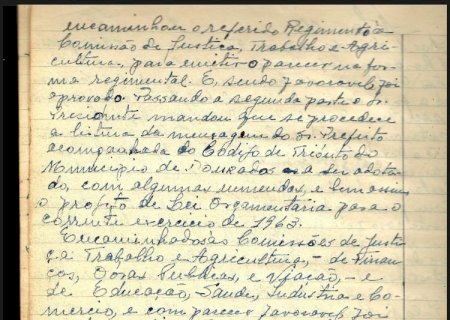 encaminhou o referido Regimento a
Comissão de Justiça, Trabalho e Agri-
cultura, para emitir o parecer na for-
ma regimental. E, sendo favoravel foi
aprovado. Passando a segunda parte o Sr.
Presidente mandou que se procedece
a leitura da mensagem do Sr. Prefeito
acompanhada do Codigo de Tributo do
Municipio de Dourados a ser adota-
do, com algumas emendas, e bem assim
o projeto de Lei Orçamentaria para o
corrente exercicio de 1963.
Encaminhados as Comissões de Justi-
ça Trabalho e Agricultura, - de Finan-
ças, Obras Publicas, e Viação, - e
de Educação, Saude, Industria e Co-
mercio, e com parecer favoravel foi